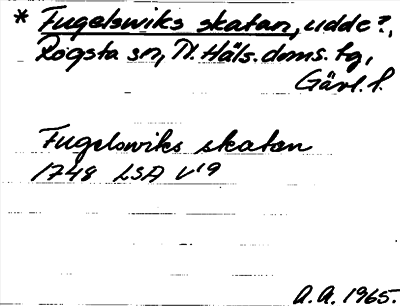 * Fugelswiks skatan, udde?,
Rogsta sn, N. Häls. doms. tg,
Gävl. l.
Fugelswiks skatan
1748 LSA V19
A.A. 1965.